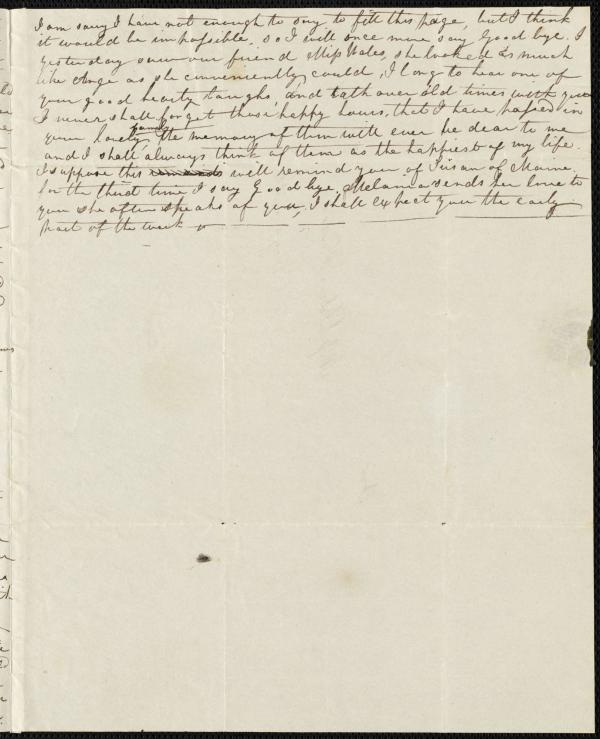 I am sorry I have not enough to say to fill this page, but I think
it would be impossible, so I will once more say Good bye. I
yesterday saw our friend Miss Wales, she looked as much
like Ange as she conveniently could, I long to hear one of
your good hearty laughs, and talk over old times with you
I never shall forget those happy hours, that I have passed in
your lovely family the memory of them will ever be dear to me
and I shall always think of them as the happiest of my life.
I suppose this reminds will remind you of Susan of Maine,
for the third time I say Good bye, Melania sends her love to
you she often speaks of you, I shall expect you the early
part of the week